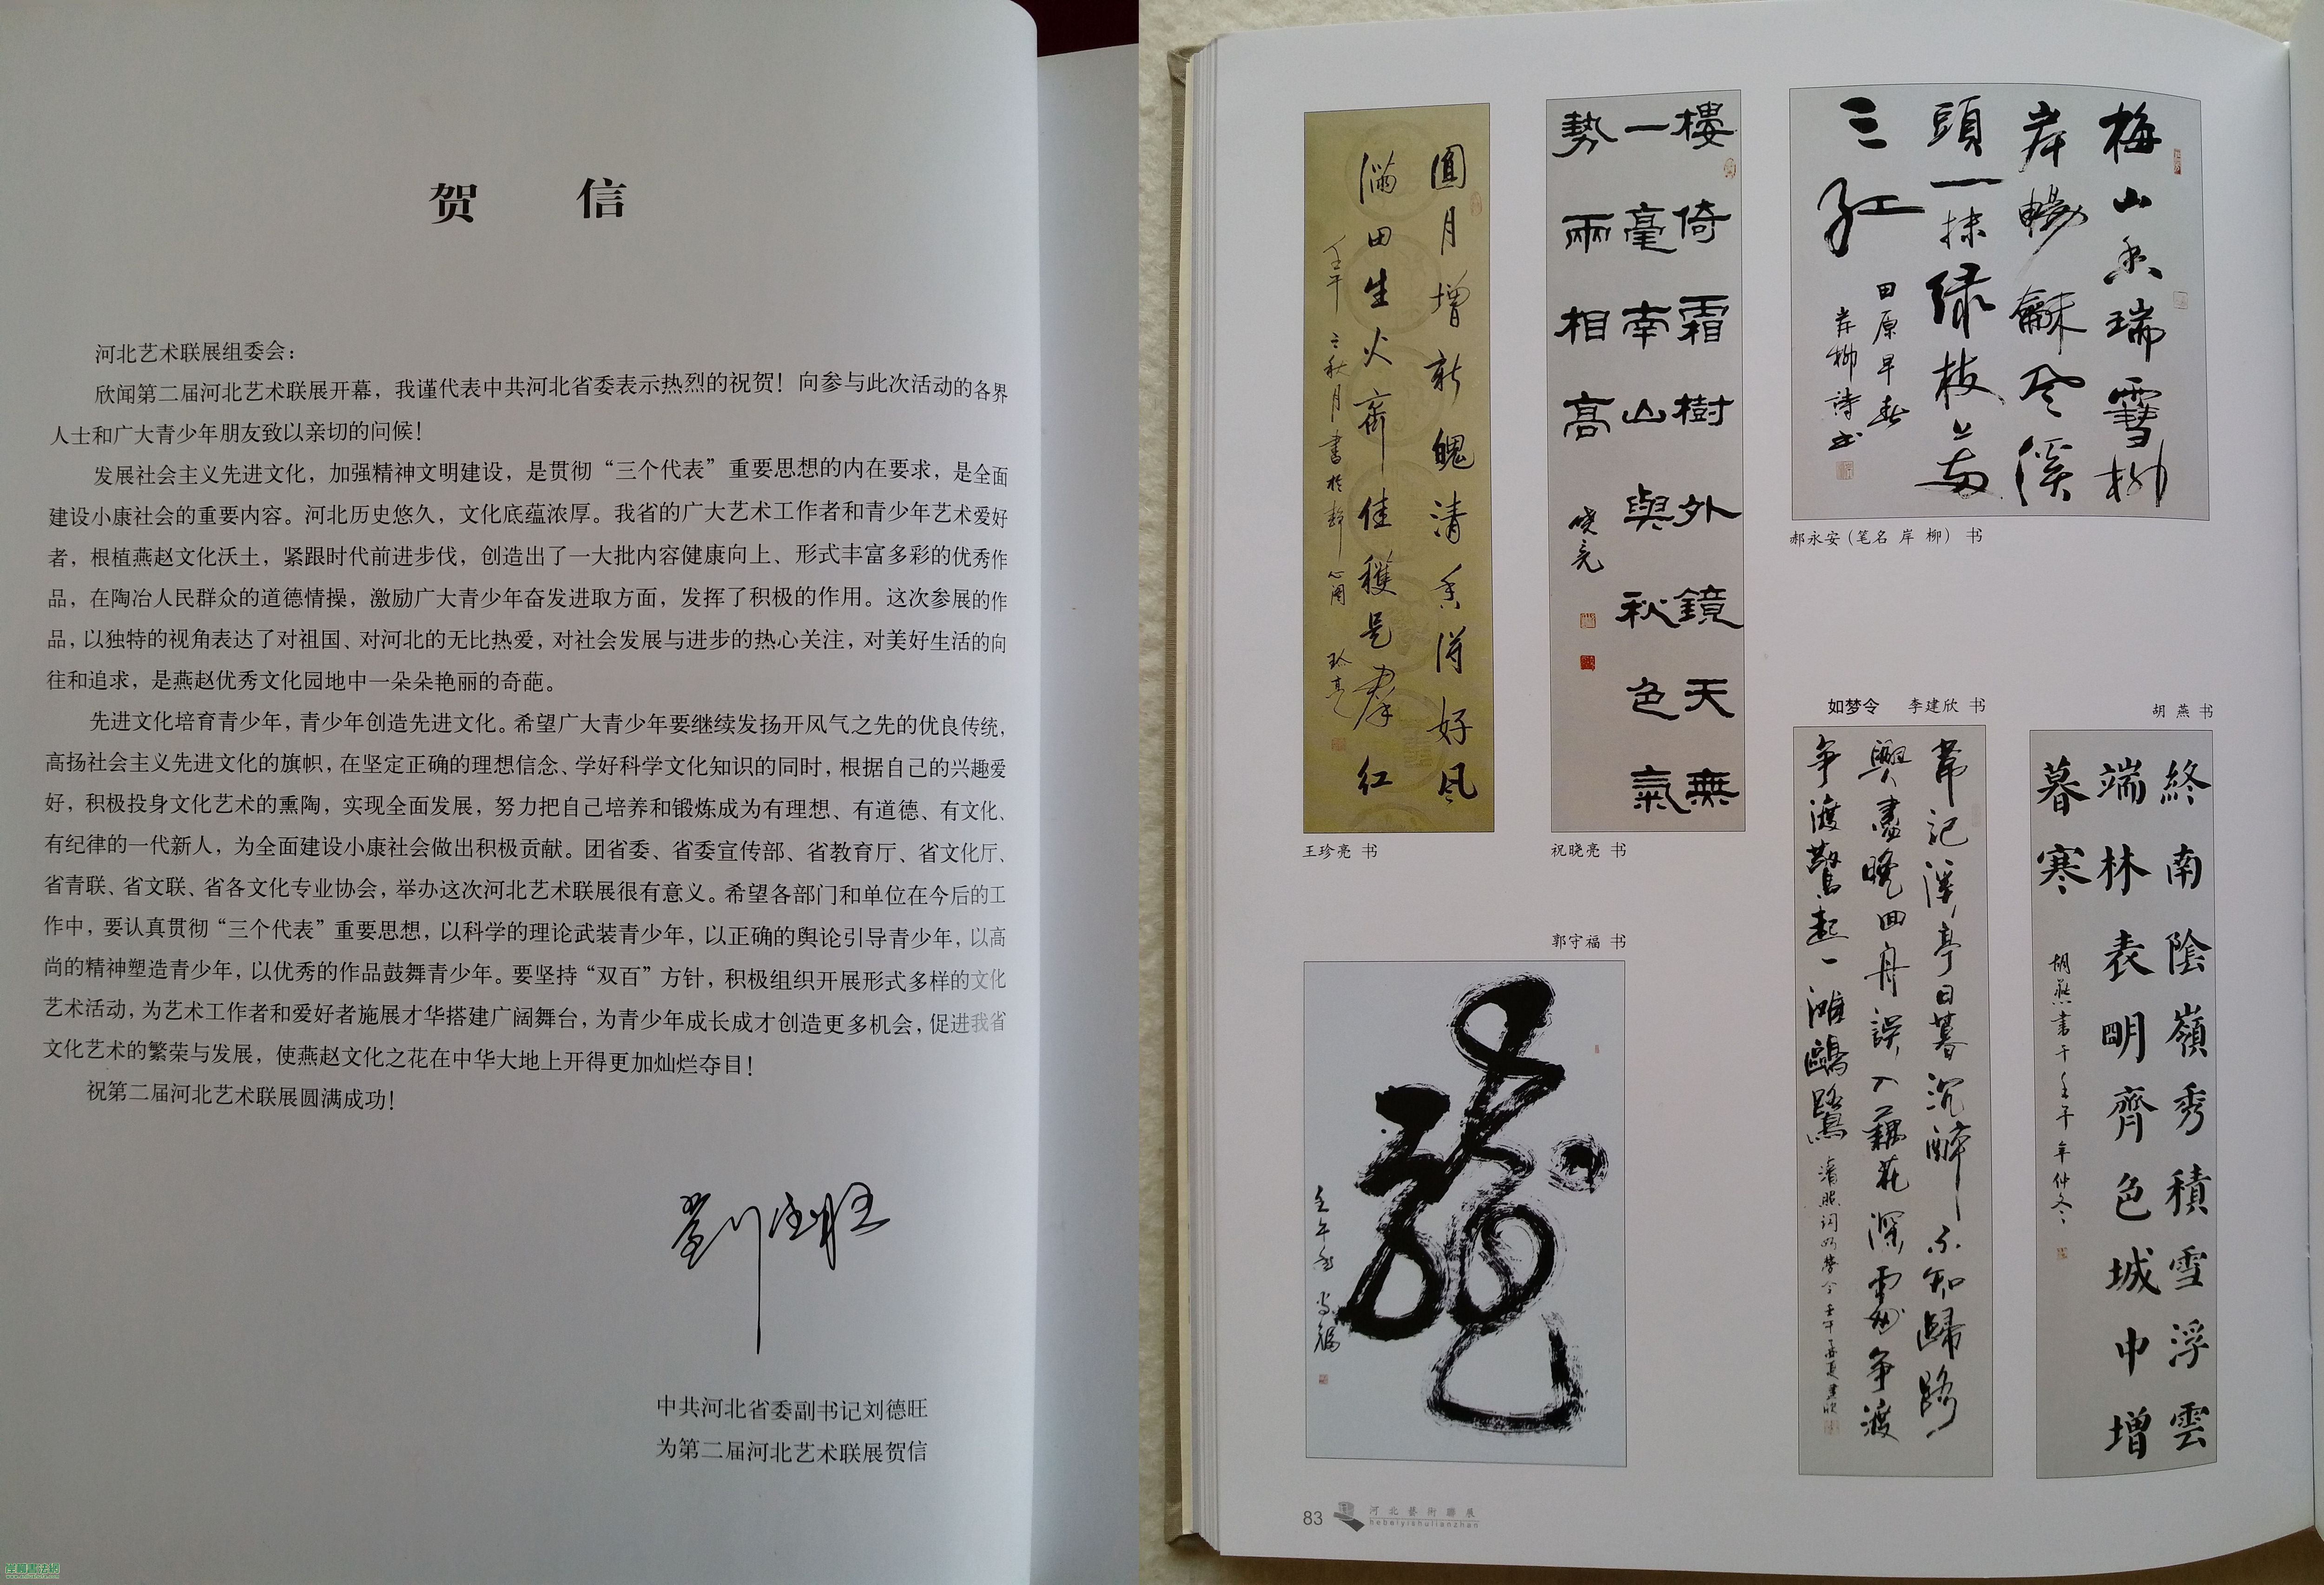 贺 信
河北艺术联展组委会：
欣闻第二届河北艺术联展开幕，我谨代表中共河北省委表示热烈的祝贺！向参与此次活动的各界
人士和广大青少年朋友致以亲切的问候！
发展社会主义先进文化，加强精神文明建设，是贯彻“三个代表”重要思想的内在要求，是全面
建设小康社会的重要内容。河北历史悠久，文化底蕴浓厚。我省的广大艺术工作者和青少年艺术爱好
者，根植燕赵文化沃土，紧跟时代前进步伐，创造出了一大批内容健康向上、形式丰富多彩的优秀作
品，在陶冶人民群众的道德情操，激励广大青少年奋发进取方面，发挥了积极的作用。这次参展的作
品，以独特的视角表达了对祖国、对河北的无比热爱，对社会发展与进步的热心关注，对美好生活的向
往和追求，是燕赵优秀文化园地中一朵朵艳丽的奇葩。
先进文化培育青少年，青少年创造先进文化。希望广大青少年要继续发扬开风气之先的优良传统，
高扬社会主义先进文化的旗帜，在坚定正确的理想信念、学好科学文化知识的同时，根据自己的兴趣爱
好，积极投身文化艺术的熏陶，实现全面发展，努力把自己培养和锻炼成为有理想、有道德、有文化、
有纪律的一代新人，为全面建设小康社会做出积极贡献。团省委、省委宣传部、省教育厅、省文化厅、
省青联、省文联、省各文化专业协会，举办这次河北艺术联展很有意义。希望各部门和单位在今后的工
作中，要认真贯彻“三个代表”重要思想，以科学的理论武装青少年，以正确的舆论引导青少年，以高
尚的精神塑造青少年，以优秀的作品鼓舞青少年。要坚持“双百”方针，积极组织开展形式多样的文化
艺术活动，为艺术工作者和爱好者施展才华搭建广阔舞台，为青少年成长成才创造更多机会，促进我省
文化艺术的繁荣与发展，使燕赵文化之花在中华大地上开得更加灿烂夺目！
祝第二届河北艺术联展圆满成功！
劉德旺
中共河北省委副书记刘德旺
为第二届河北艺术联展贺信
圓月增新魄清香得好风
滿田生火齊佳穫是群红
壬午之秋月書於静心阁
珍亮
王珍亮 书
樓倚霜樹外鏡天無
一毫南山與秋色氣
勢兩相高
晓亮
祝晓亮 书
梅山香瑞雪柳
岸暢龢风溪
頭一抹绿枝上兩
三红
田原早春
岸柳诗书
郝永安（笔名 岸 柳） 书
郭守福 书
龍
壬午
守福
如梦令 李建欣 书
常记溪亭日暮沉醉不知歸路
興盡晚回舟誤入藕花深處争渡
争渡驚起一灘鷗鷺
清照词如梦令壬午孟夏建欣
胡 燕 书
終南陰嶺秀積雪浮雲
端林表明齊色城中增
暮寒
胡燕書于壬午年仲冬
83
河北藝術聯展
hebeiyishulianzhan